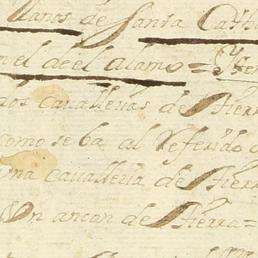 llanos de Santa Catha
en el de el alamo = Y ten
dos cavallerias de tierra
como se ba al Referido
una cavalleria de tierra
Un ancon de tierra =